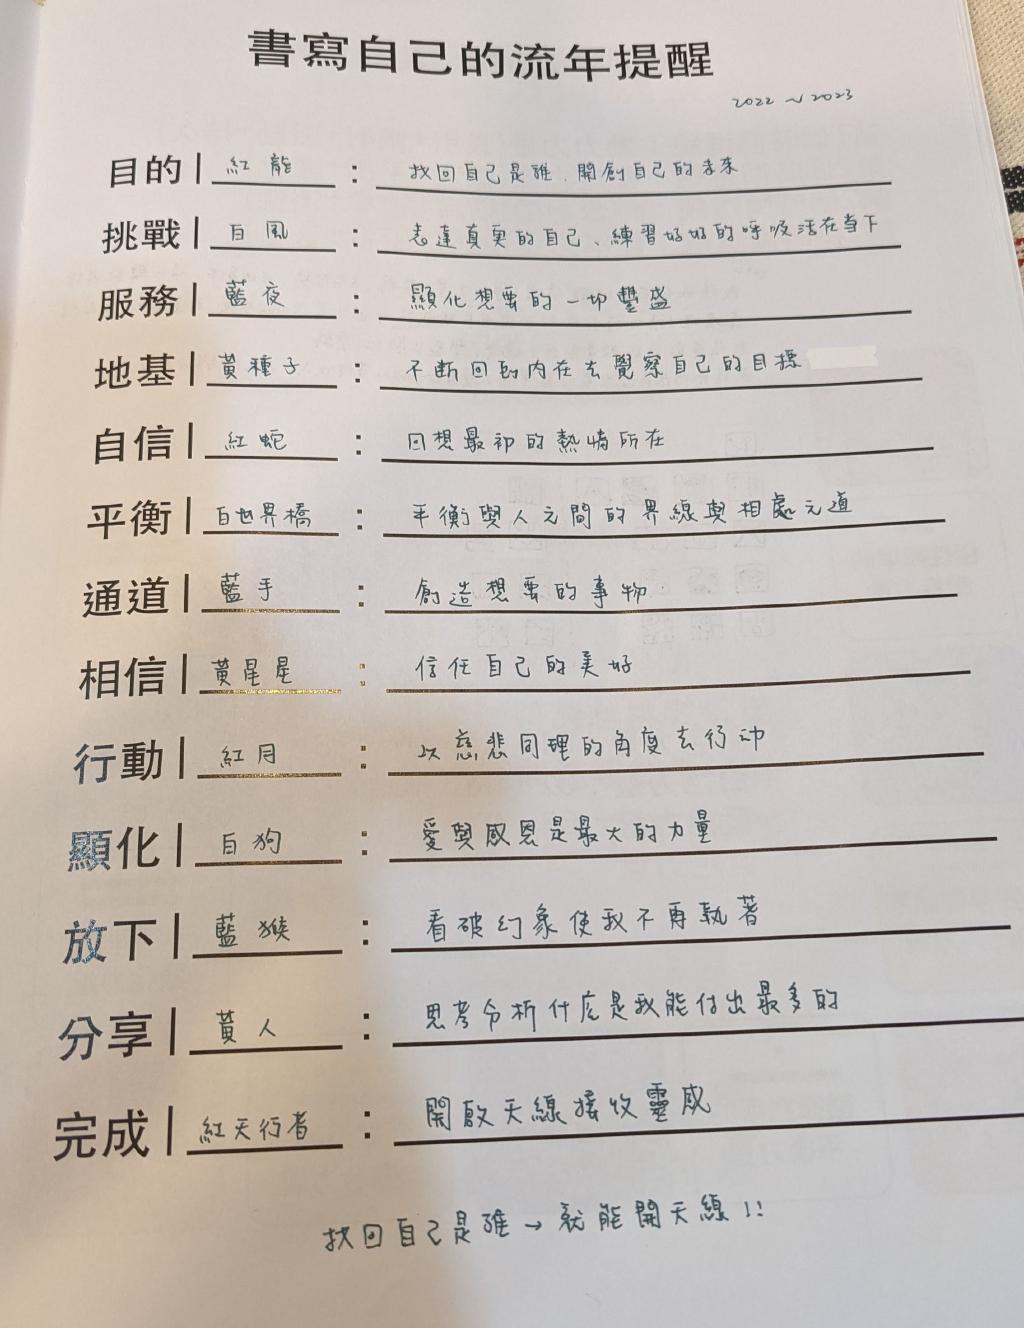 書寫自己的流年提醒
2022 ~ 2023
目的 | 紅龍 : 找回自己是誰、開創自己的未來
挑戰 | 白風 : 表達真实的自己、練習好好的呼吸活在当下
服務 | 藍夜 : 顯化想要的一切豐盛
地基 | 黃種子 : 不斷回到內在去覺察自己的目標
自信 | 紅蛇 : 回想最初的熱情所在
平衡 | 白世界橋 : 平衡與人之間的界線與相處之道
通道 | 藍手 : 創造想要的事物
相信 | 黃星星 : 信任自己的美好
行動 | 紅月 : 以慈悲同理的角度去行动
顯化 | 白狗 : 愛與感恩是最大的力量
放下 | 藍猴 : 看破幻象使我不再執著
分享 | 黃人 : 思考分析什庅是我能付出最多的
完成 | 紅天行者 : 開啟天線接收靈感
找回自己是誰→就能開天線!!